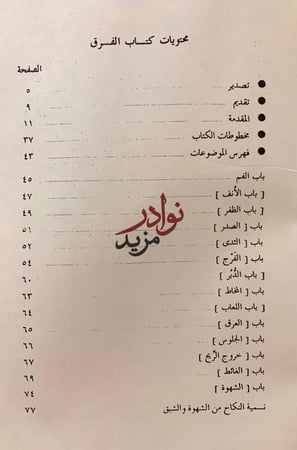 محتويات كتاب الفرق
الصفحة
● تصدير ٥
● تقديم ٩
● المقدمة ١١
● مخطوطات الكتاب ٣٧
● فهرس الموضوعات ٤٣
باب الفم ٤٥
باب [ الأنف ] ٤٧
باب [ الظفر ] ٤٩
باب [ الصدر ] ٥١
باب [ الثدى ] ٥٢
باب [ الفَرْج ] ٥٤
باب [ الدُّبُر ] ٦٠
باب [ المخاط ] ٦٣
باب [ اللعاب ] ٦٤
باب [ العرق ] ٦٥
باب [ الجلوس ] ٦٦
باب [ خروج الرِّيح ] ٦٧
باب [ الغائط ] ٦٩
باب [ الشهوة ] ٧٤
تسمية النكاح من الشهوة والشبق ٧٧
نوادر
مزيد